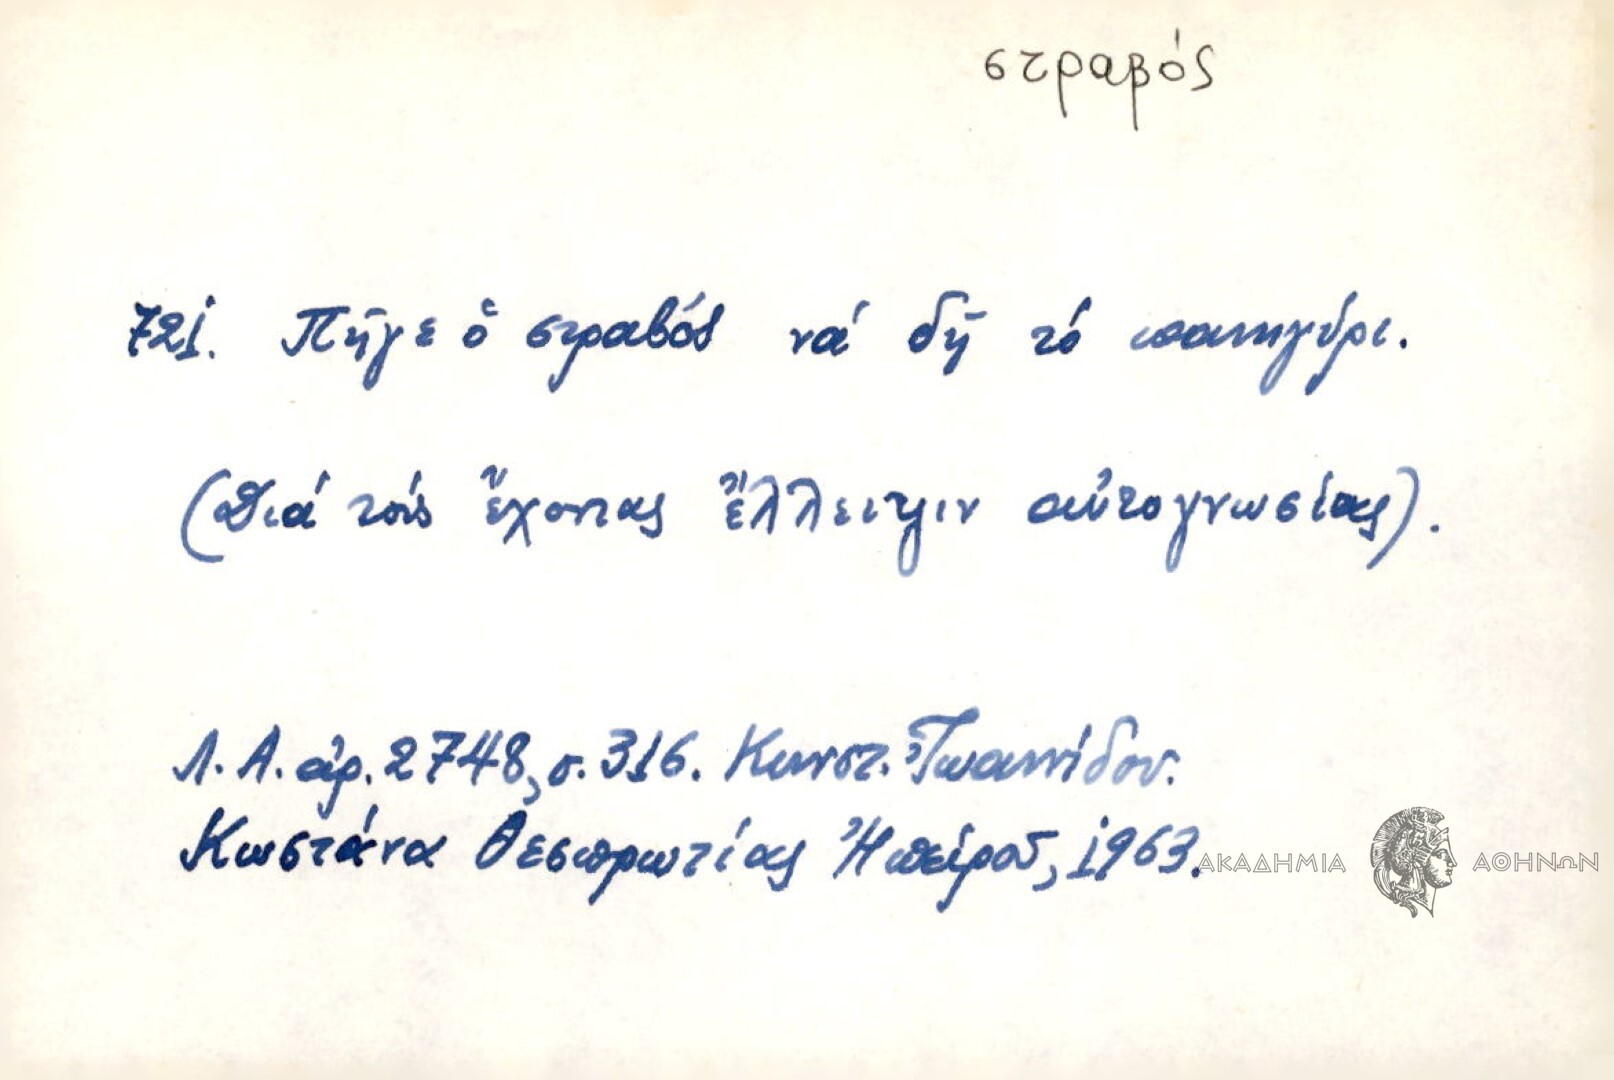 στραβός
721. Πῆγε ὁ στραβός νά δῇ τό πανηγύρι.
(Διά τούς ἔχοντας ἔλλειψιν αὐτογνωσίας).
Λ.Α. ἀρ. 2748, σ. 316. Κωνστ. Ἰωαννίδου.
Κωστάνα Θεσπρωτίας Ἠπείρου, 1963.
ΑΚΑΔΗΜΙΑ ΑΘΗΝΩΝ